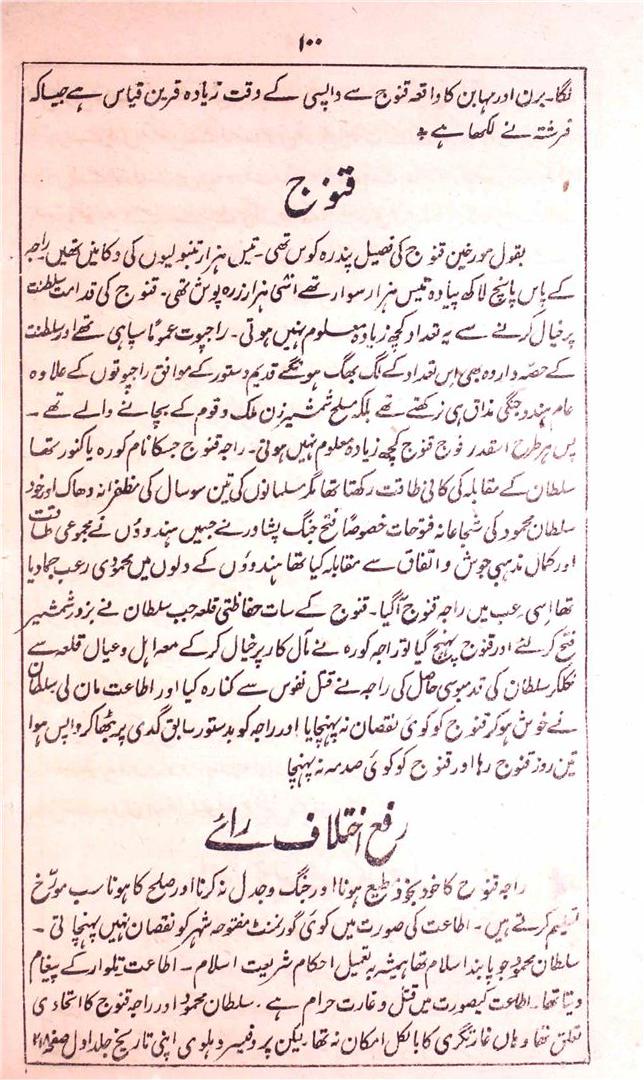 ۱۰۰
لگا۔ برن اور مہابن کا واقعہ قنوج سے واپسی کے وقت زیادہ قرین قیاس ہے جیسا کہ
فرشتہ نے لکھا ہے ٭
قنوج
بقول مورخین قنوج کی فصیل پندرہ کوس تھی۔ تیس ہزار تنبولیوں کی دکانیں تھیں۔ راجہ
کے پاس پانچ لاکھ پیادہ تیس ہزار سوار تھے اسّی ہزار زرہ پوش تھی۔ قنوج کی قدامت سلطنت
پر خیال کرنے سے یہ تعداد کچھ زیادہ معلوم نہیں ہوتی۔ راجپوت عموماً سپاہی تھے اور سلطنت
کے حصہ دار وہ بھی اس تعداد کے لگ بھگ ہونگے قدیم دستور کے موافق راجپوتوں کے علاوہ
عام ہندو جنگی مذاق ہی نرکھتے تھے بلکہ مسلح شمشیر زن ملک و قوم کے بچانے والے تھے ۔
پس ہر طرح اسقدر فوج قنوج کچھ زیادہ معلوم نہیں ہوتی۔ راجہ قنوج جسکا نام کورہ یا کنور تھا
سلطان کے مقابلہ کی کافی طاقت رکھتا تھا مگر مسلمانوں کی تین سو سال کی مظفرانہ دھاک اور خود
سلطان محمود کی شجاعانہ فتوحات خصوصاً فتح جنگ پشاور نے جہیں ہندوؤں نے مجموعی طاقت
اور کمال مذہبی جوش و اتفاق سے مقابلہ کیا تھا ہندوؤں کے دلوں میں محمودی رعب جما دیا
تھا اسی رعب میں راجہ قنوج آگیا۔ قنوج کے سات حفاظتی قلعہ جب سلطان نے بزور شمشیر
فتح کر لئے اور قنوج پہنچ گیا تو راجہ کورہ نے مآل کار پر خیال کر کے معہ اہل و عیال قلعہ سے
نکلکر سلطان کی قدمبوسی حاصل کی راجہ نے قتل نفوس سے کنارہ کیا اور اطاعت مان لی سلطان
نے خوش ہو کر قنوج کو کوئی نقصان نہ پہنچایا اور راجہ کو بدستور سابق گدی پر بٹھا کر واپس ہوا
تین روز قنوج رہا اور قنوج کو کوئی صدمہ نہ پہنچا
رفع اختلاف رائے
راجہ قنوج کا خود بخود مطیع ہونا اور جنگ و جدل نہ کرنا اور صلح کا ہونا سب مورّخ
تسلیم کرتے ہیں۔ اطاعت کی صورت میں کوئی گورنمنٹ مفتوحہ شہر کو نقصان نہیں پہنچاتی ۔
سلطان محمود جو پابند اسلام تھا ہمیشہ بہ تعمیل احکام شریعت اسلام ۔ اطاعت یا تلوار کے پیغام
دیتا تھا۔ اطاعت کیصورت میں قتل و غارت حرام ہے ۔ سلطان محمود اور راجہ قنوج کا اتحادی
تعلق تھا وہاں غارتگری کا بالکل امکان نہ تھا۔ لیکن پروفیسر دہلوی اپنی تاریخ جلد اول صفحہ ۲۱۸